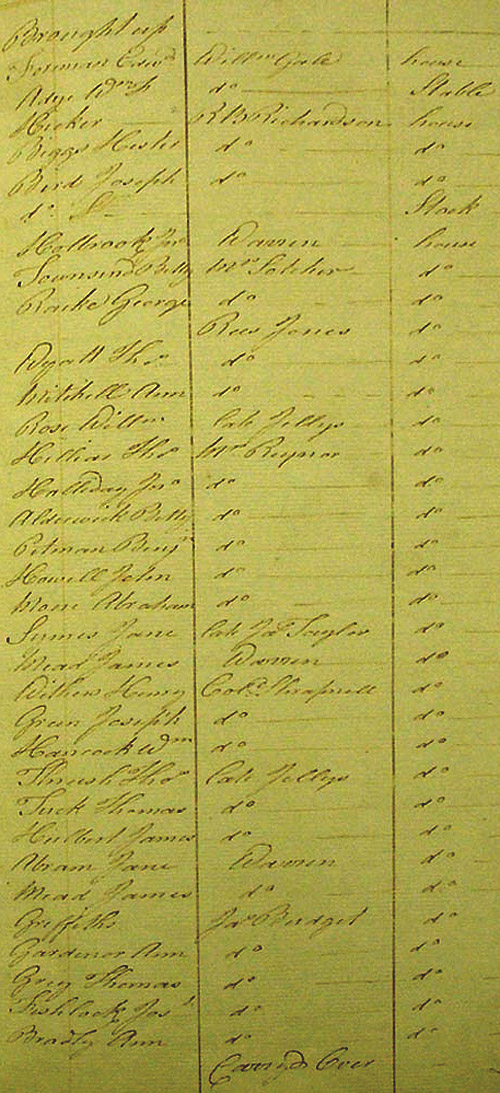 Brought up
Forman Edwd Willm Gale house
Adye Wm do Stable
Hicker R B Richardson house
Biggs Hester do do
Bird Joseph do do
do Stock
Holbrook Jno Warren house
Townsend Betty Mrs do
Rache George do do
Rees Jones do
Wyatt Thos do do
Mitchell Ann do do
Rose Willm late Jellys do
Hillier Thos Mrs Reynor do
Halliday Jno do do
Alderwick Betty do do
Pitman Benjn do do
Howell John do do
More Abraham do do
Symes Jane late Jas Taylor do
Mead James Warren do
Withers Henry Col. Shrapnell do
Green Joseph do do
Hancock Wm do do
Thrush Thos late Jellys do
Tuck Thomas do do
Hulbert James do do
Abram Jane Warren do
Mead James do do
Griffiths Jas Budget do
Gardenor Ann do do
Grey Thomas do do
Fishlock Jos do do
Bradly Ann do do
Carryd Over